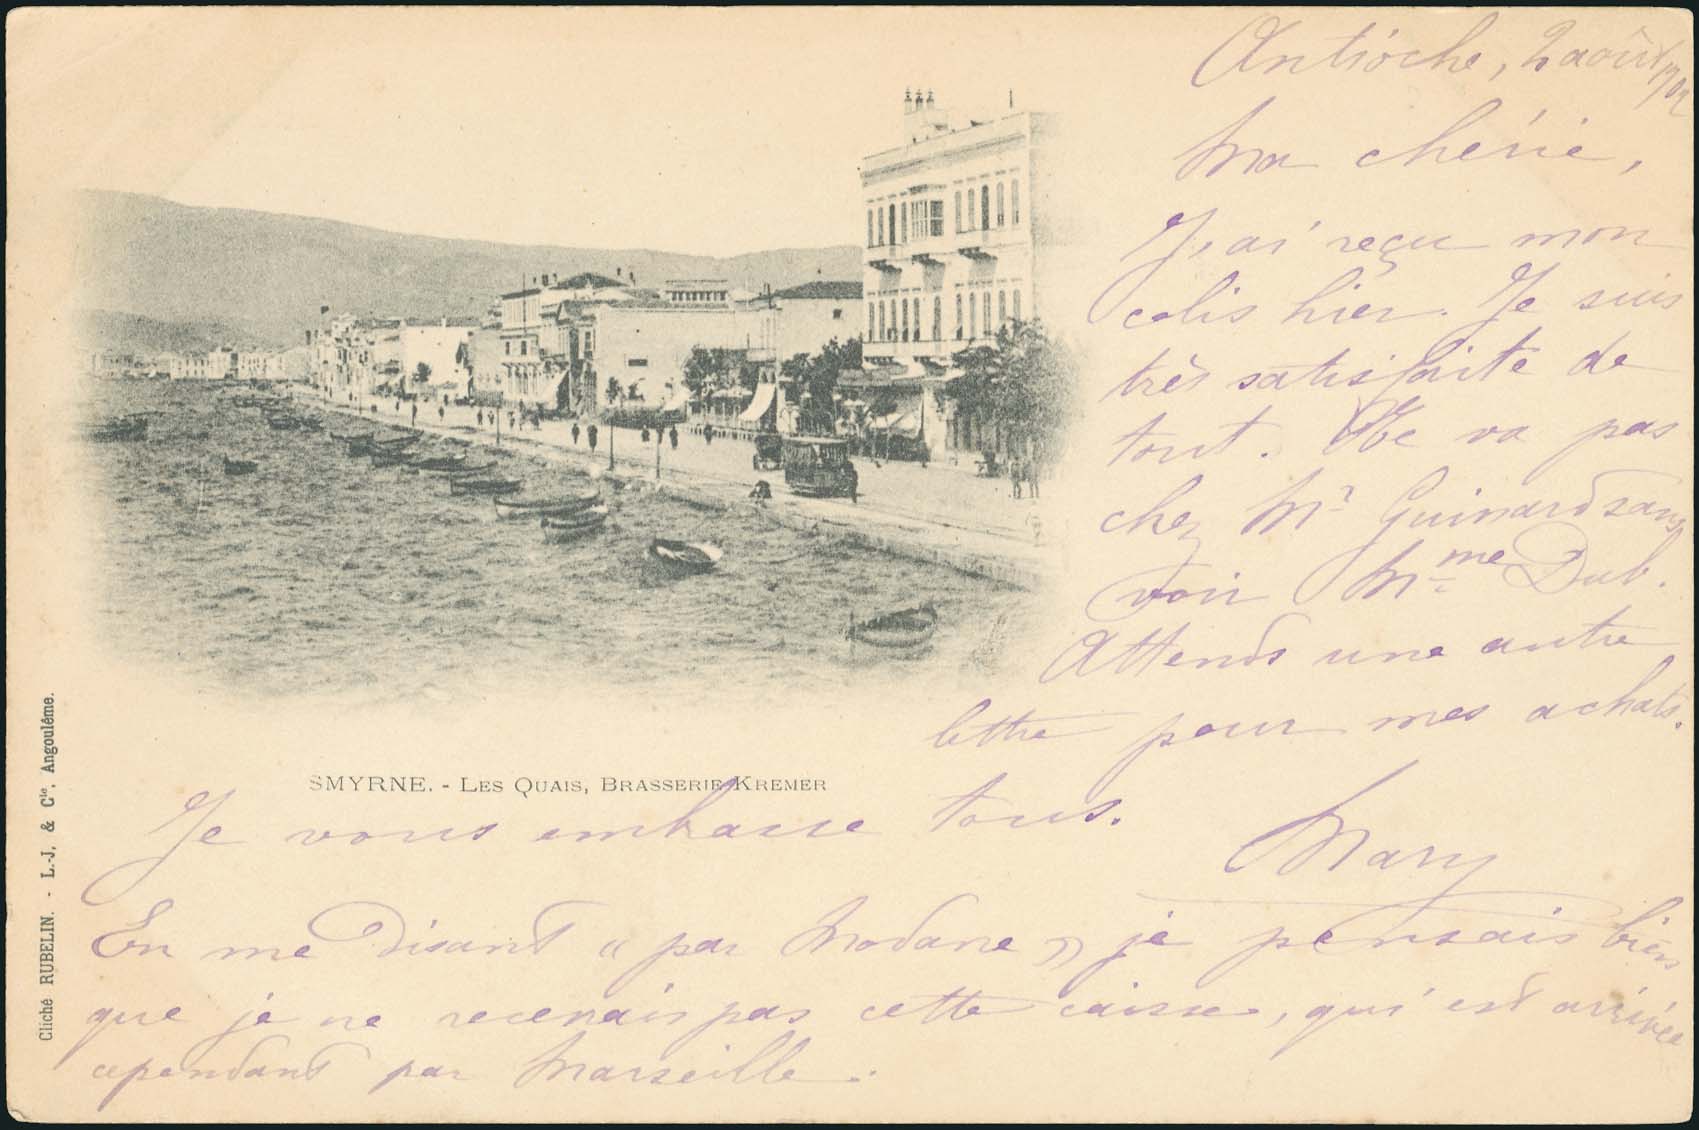 Antioche, 2 août 1902
Ma chérie,
J'ai reçu mon
colis hier. Je suis
très satisfaite de
tout. Ne va pas
chez Mr Guinard sans
voir Mme Dub.
Attends une autre
lettre pour mes achats.
SMYRNE. - LES QUAIS, BRASSERIE KREMER
Je vous embrasse tous.
Mary
En me disant « par Modane » je pensais bien
que je ne recevrais pas cette caisse, qui est arrivée
cependant par Marseille.
Cliché RUBELIN. - L.-J, & Cie, Angoulême.